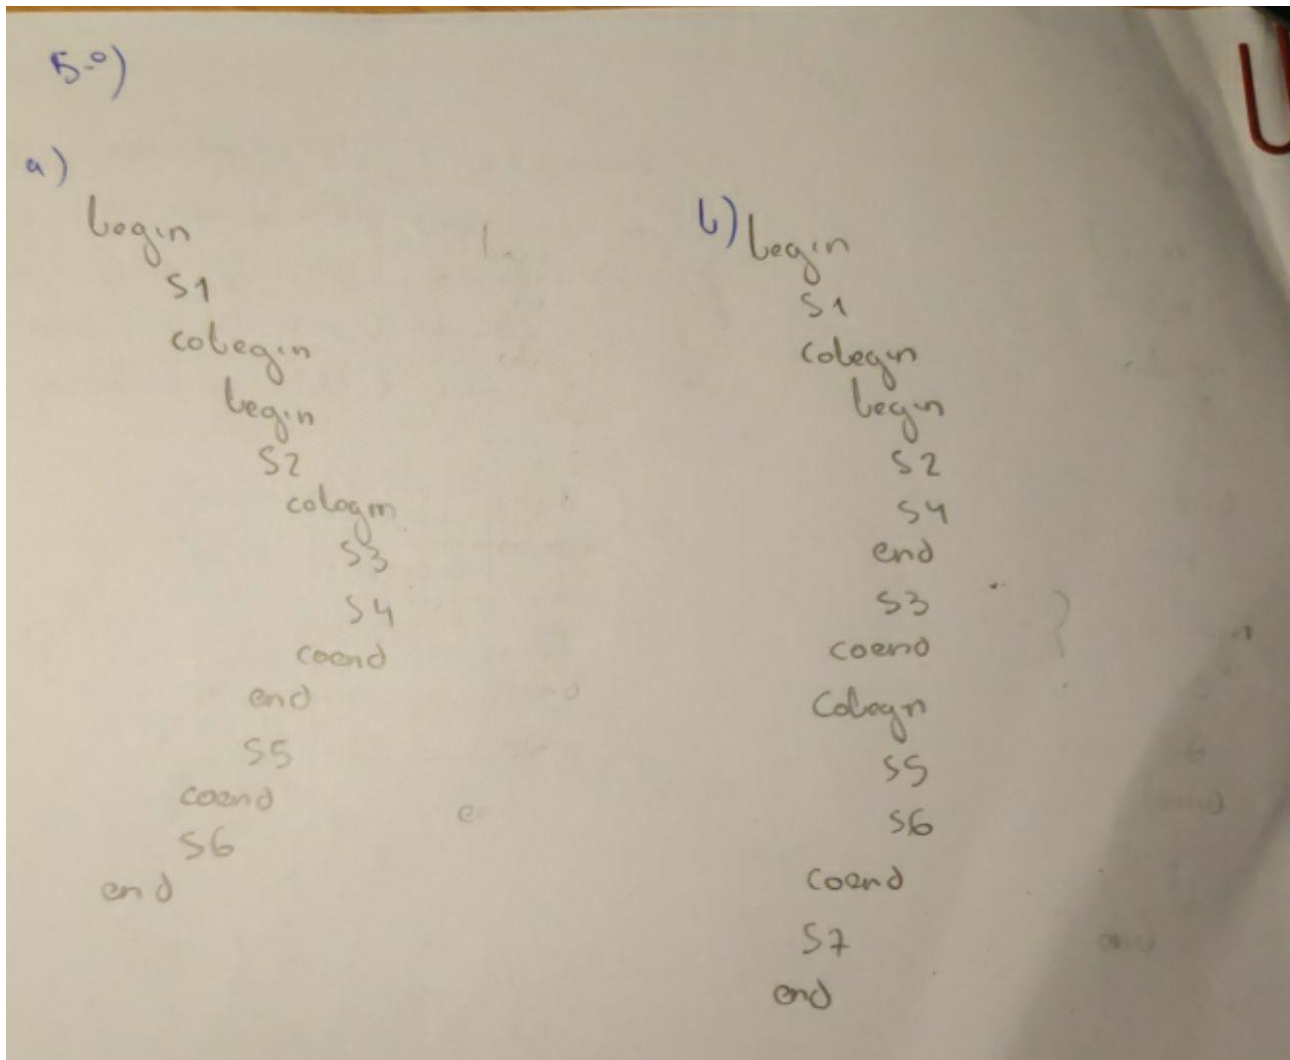 5-º)
a)
begin
S1
cobegin
begin
S2
cobegin
S3
S4
coend
end
S5
coend
S6
end
b) begin
S1
cobegin
begin
S2
S4
end
S3
coend
Cobegin
S5
S6
coend
S7
end